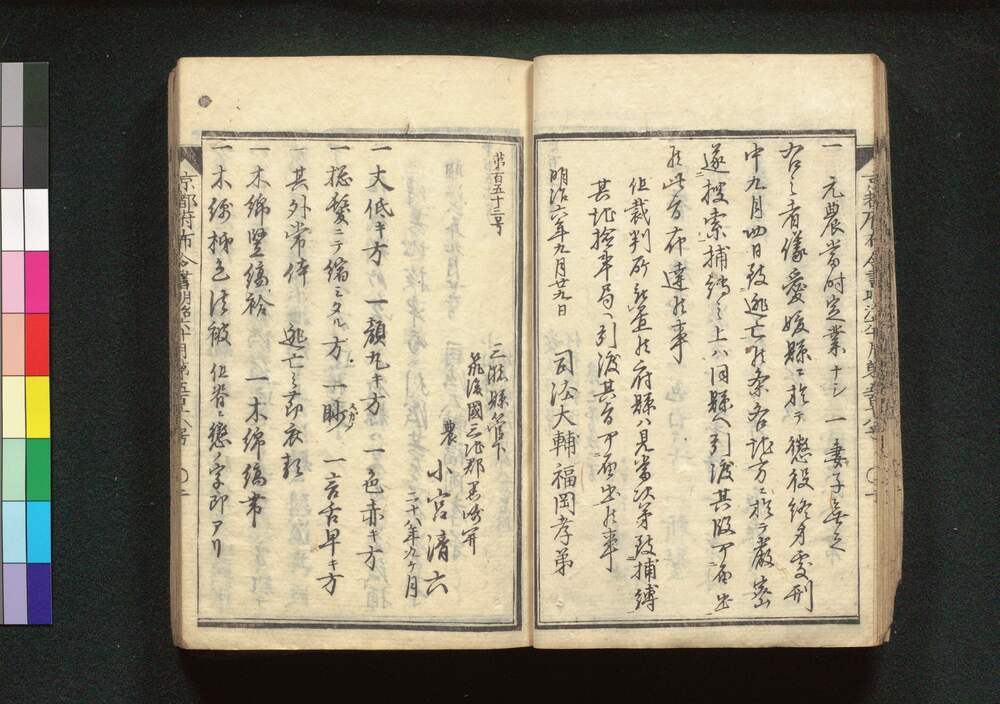 一 元農當時定業ナシ 一 妻子無之
右之者儀愛媛縣ニ於テ懲役終身處刑
中九月四日致逃亡候条各地方ニ於テ嚴密
遂搜索捕縛之上ハ同縣ヘ引渡其段可届出
候此旨布達候事
但裁判所設置候府縣ハ見當次第致捕縛
其地檢事局ヘ引渡其旨可届出候事
明治六年九月廿九日
司法大輔福岡孝弟
第百五十二号
三瀦縣管下
筑後國三池郡
農
小宮清六
二十八年九ヶ月
一 丈低キ方 一 顔丸キ方 一 色赤キ方
一 惣髪ニテ縮ミタル方 一 眇 一 言舌早キ方
一 其外常体 逃亡之節衣類
一 木綿竪縞袷 一 木綿縞帯
一 木綿柿色法被 但脊ニ懲ノ字印アリ
京都府布令書明治六十月第五百十八号